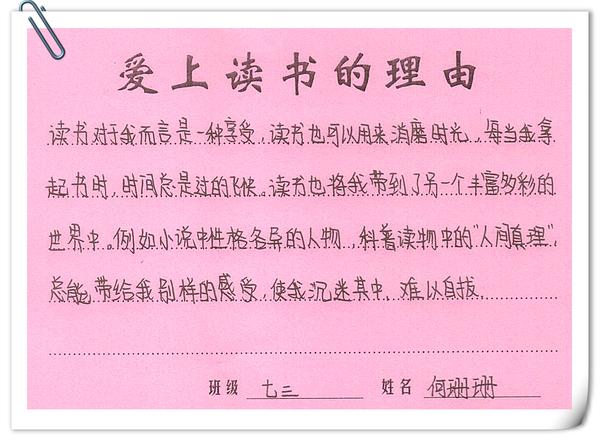 爱上读书的理由
读书对于我而言是一种享受，读书也可以用来消磨时光，每当我拿
起书时，时间总是过的飞侯。读书也将我带到了另一个丰富多彩的
世界中。例如小说中性格各异的人物，科普读物中的“人间真理”，
总能带给我别样的感受，使我沉迷其中，难以自拔。
班级 七三 姓名 何珊珊